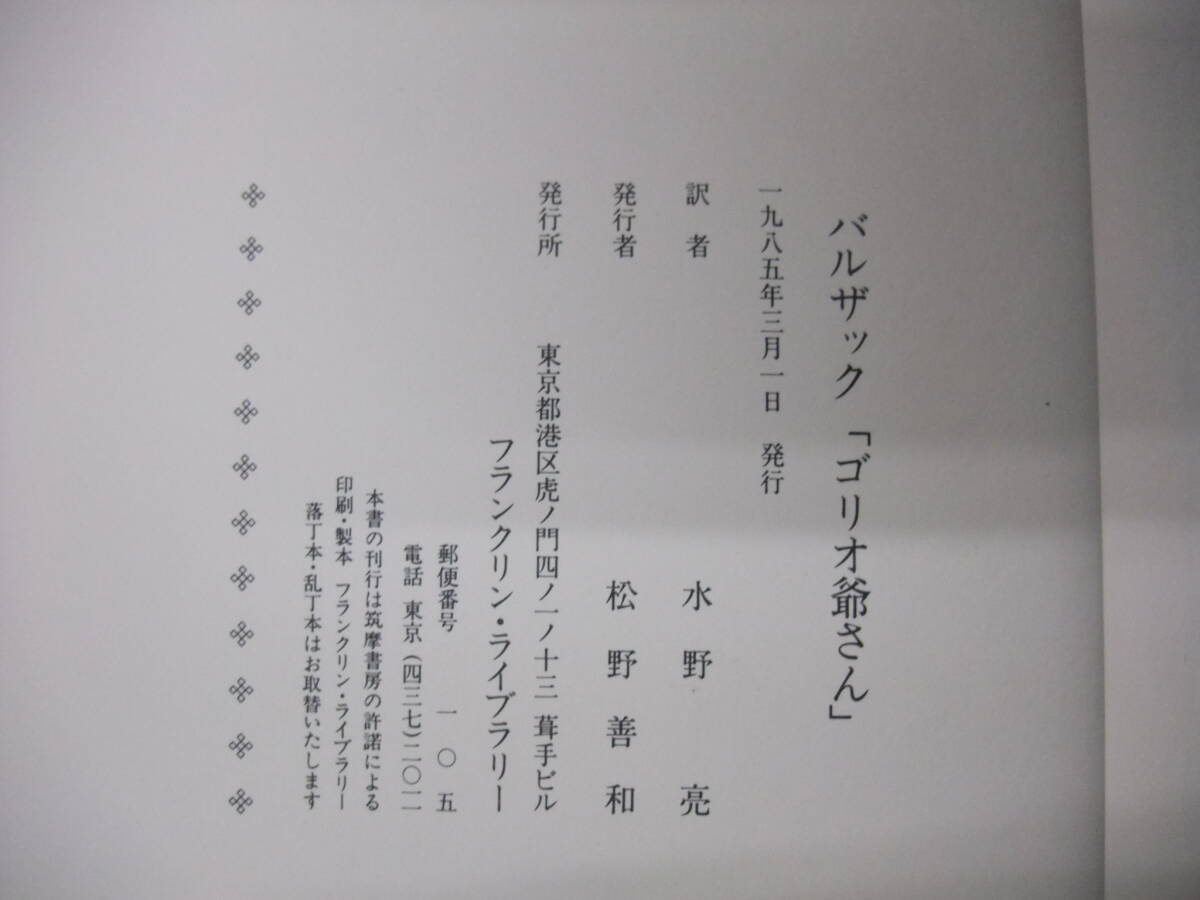 バルザック「ゴリオ爺さん」
一九八五年三月一日 発行
訳者 水野 亮
発行者 松野善和
発行所 東京都港区虎ノ門四ノ一ノ十三 葺手ビル
フランクリン・ライブラリー
郵便番号 一〇五
電話 東京(四三七)二〇二一
本書の刊行は筑摩書房の許諾による
印刷・製本 フランクリン・ライブラリー
落丁本・乱丁本はお取替いたします